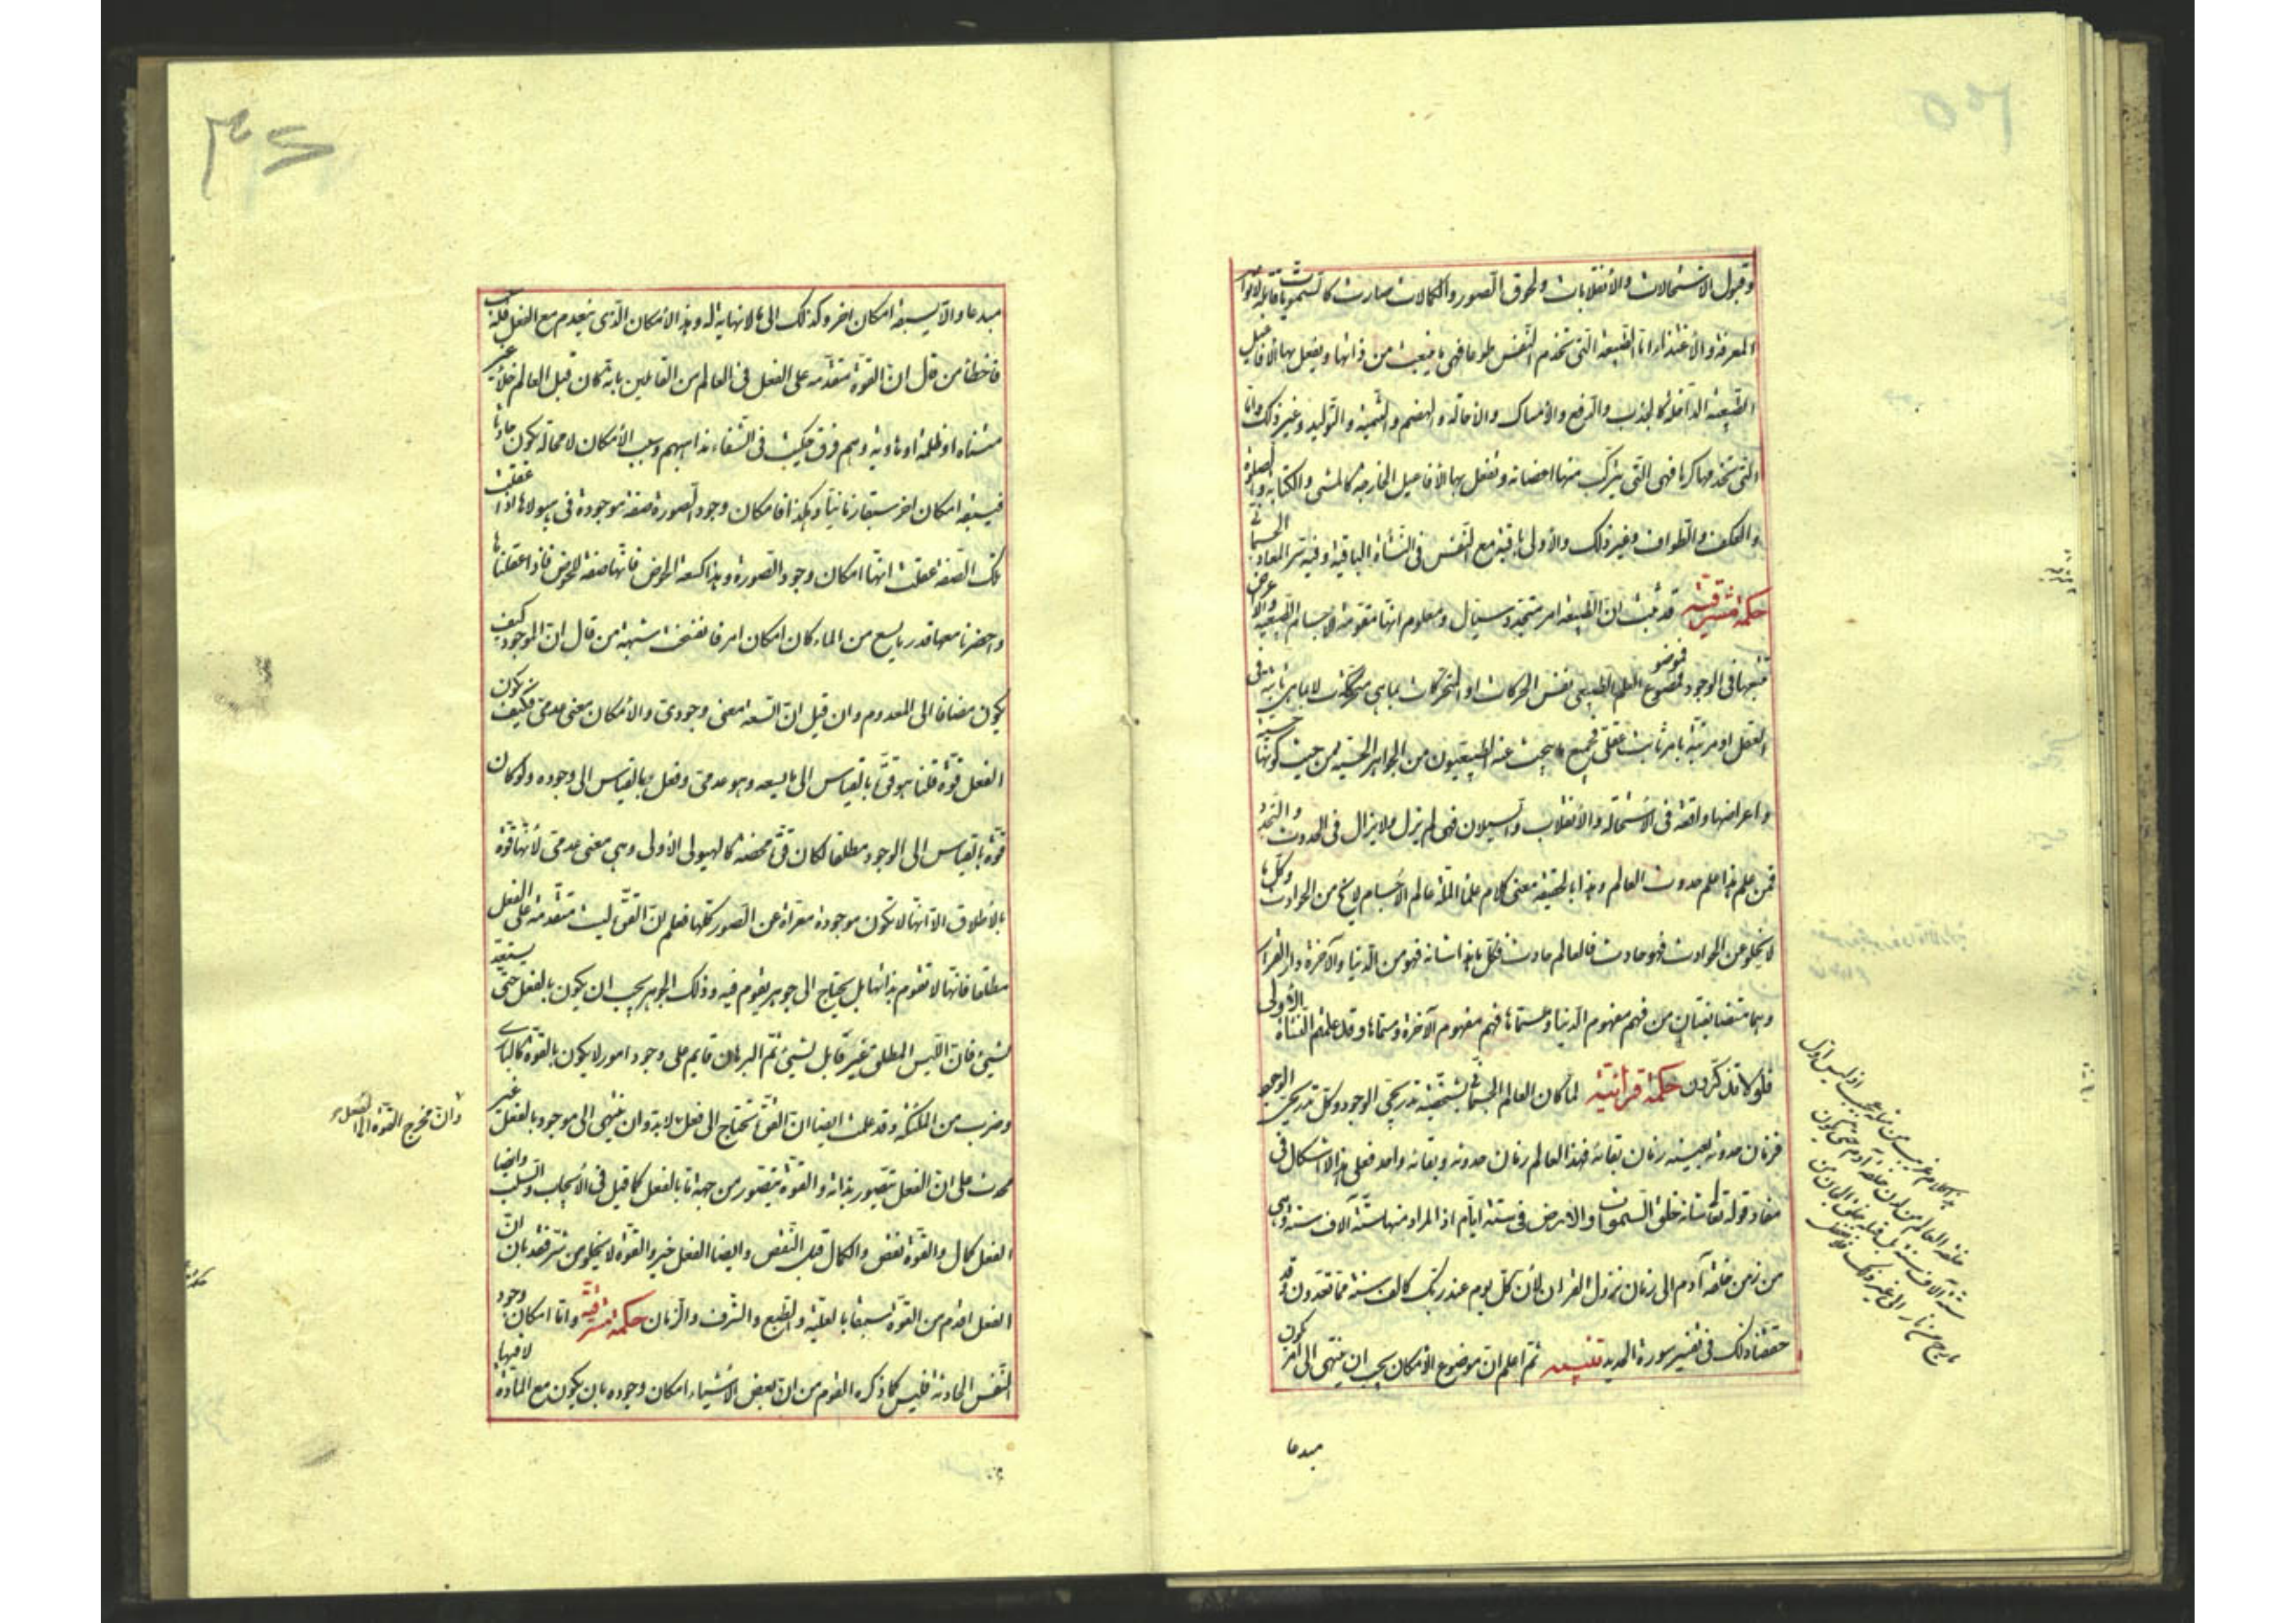 وقبول الاستحالات والأنقلابات ولحوق الصور والكمالات صارت كانت
المعرفة والأغتذاء اما الطبيعة التى تخدم النفس طوعا فهى ما ينبعث من ذاتها ويفعل بها الأفاعيل
الطبيعية الداخلة كالجذب والدفع والأمساك والاحالة والهضم والتنمية والتوليد وغير ذلك واما
التى تخدمها كرها فهى التى يتركب منها اعضائه وتفعل بها الأفاعيل الخارجية كالمشى والكتابة والصلوة
والعكف والطواف وغير ذلك والأولى باقية مع النفس فى النشأة الباقية وفيه سر المعاد الجسمانى
حكمة مشرقية قد ثبت ان الطبيعة امر متجدد سيال ومعلوم انها مقومة للاجسام الطبيعية والاعراض
تتبعها فى الوجود فموضوع العلم الطبيعى نفس الحركات او المتحركات بما هى متحركة لا بما هى ثابتة فى
العقل او مرتبة بامر ثابت عقلى فجميع ما يبحث عنه الطبيعيون من الجواهر الحسية من حيث كونها حسية
واعراضها واقعة فى الاستحالة والأنقلاب والسيلان فهى لم يزل ولا يزال فى الحدوث والتجدد
فمن علم هذا علم حدوث العالم وهذا بالحقيقة معنى كلام علماء الملة عالم الاجسام لا يخ من الحوادث وكل ما
لا يخلو عن الحوادث فهو حادث فالعالم حادث فكل ما هذا شانه فهو من الدنيا والآخرة دار القرار
وهما متضايفتان من فهم مفهوم الدنيا ومسماها فهم مفهوم الآخرة ومسماها ولقد علمتم النشأة الأولى
فلولا تذكرون حكمة قرآنية لما كان العالم الجسمانى بشخصيته تدريجى الوجود وكل تدريجى الوجود
فزمان حدوثه بعينه زمان بقائه فهذا العالم زمان حدوثه وبقائه واحد فعلى هذا لا اشكال فى
مفاد قوله تعالى شانه خلق السموات والارض فى ستة ايام اذ المراد منها ستة آلاف سنة وهى
من زمن خلقة آدم الى زمان نزول القرآن لأن كل يوم عند ربك كالف سنة مما تعدون وقد
حققنا ذلك فى تفسير سورة الحديد تنبيه ثم اعلم ان موضوع الأمكان يجب ان ينتهى الى امر يكون
مبدعا
مبدعا والا يسبقه امكان اخر وكذلك الى ما لا نهاية له وهذا الأمكان الذى ينعدم مع الفعل فله سبب
فاخطأ من قال ان القوة متقدمة على الفعل فى العالم من القائلين بانه كان قبل العالم خلاء غير
متناه او ظلمة او هاوية وهم فرق حكيت فى الشفاء مذاهبهم وسبب الأمكان لا محالة يكون حادثا
فيسبقه امكان اخر سبقا زمانيا وهكذا فامكان وجود الصورة صفة موجودة فى هيولاها اذا عقلت
تلك الصفة عقلت انها امكان وجود الصورة وهذا كسعة الحوض فانها صفة للحوض فاذا عقلناها
واحضرنا معها قدر ما يسع من الماء كان امكان امر فانفسخت شبهة من قال ان الموجود كيف
يكون مضافا الى المعدوم وان قيل ان السعة معنى وجودى والأمكان معنى عدمى فكيف يكون
الفعل قوة قلنا هو قوة بالقياس الى ما يسعه وهو عدمى وفعل بالقياس الى وجوده ولو كان
قوة بالقياس الى الوجود مطلقا لكان قوة محضة كالهيولى الأولى وهى معنى عدمى لأنها قوة
بالأطلاق الا انها لا تكون موجودة معراة عن الصور كلها فعلم ان القوة ليست متقدمة على الفعل
مطلقا فانها لا تقوم بذاتها بل تحتاج الى جوهر يقوم فيه وذلك الجوهر يجب ان يكون بالفعل حتى يستعد
لشىء فان الليس المطلق غير قابل لشىء ثم البرهان قايم على وجود امور لا يكون بالقوة كالبارى
وضرب من الملئكة وقد علمت ايضا ان القوة تحتاج الى فعل لابد وان ينتهى الى موجود بالفعل غير
محدث على ان الفعل يتصور بذاته والقوة يتصور من جهة ما بالفعل كما قيل فى الأيجاب والسلب وايضا
الفعل كمال والقوة نقص والكمال قبل النقص وايضا الفعل خير والقوة لا يخلو من شر فقد بان ان
الفعل اقدم من القوة سبقا بالعلية والطبع والشرف والزمان حكمة مشرقية واما امكان وجود
النفس الحادثة فليس كما ذكره القوم من ان بعض الأشياء امكان وجوده بان يكون مع المادة لا فيها
وان مخرج القوة الى الفعل